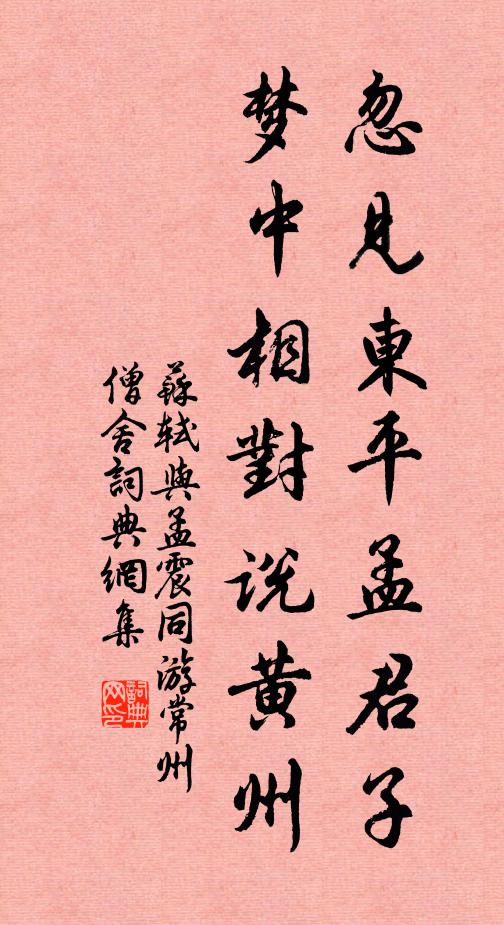 忽見東平孟君子
梦中相對説黄州
蘇軾與孟震同游常州
僧舍詞典網集
詞典网印